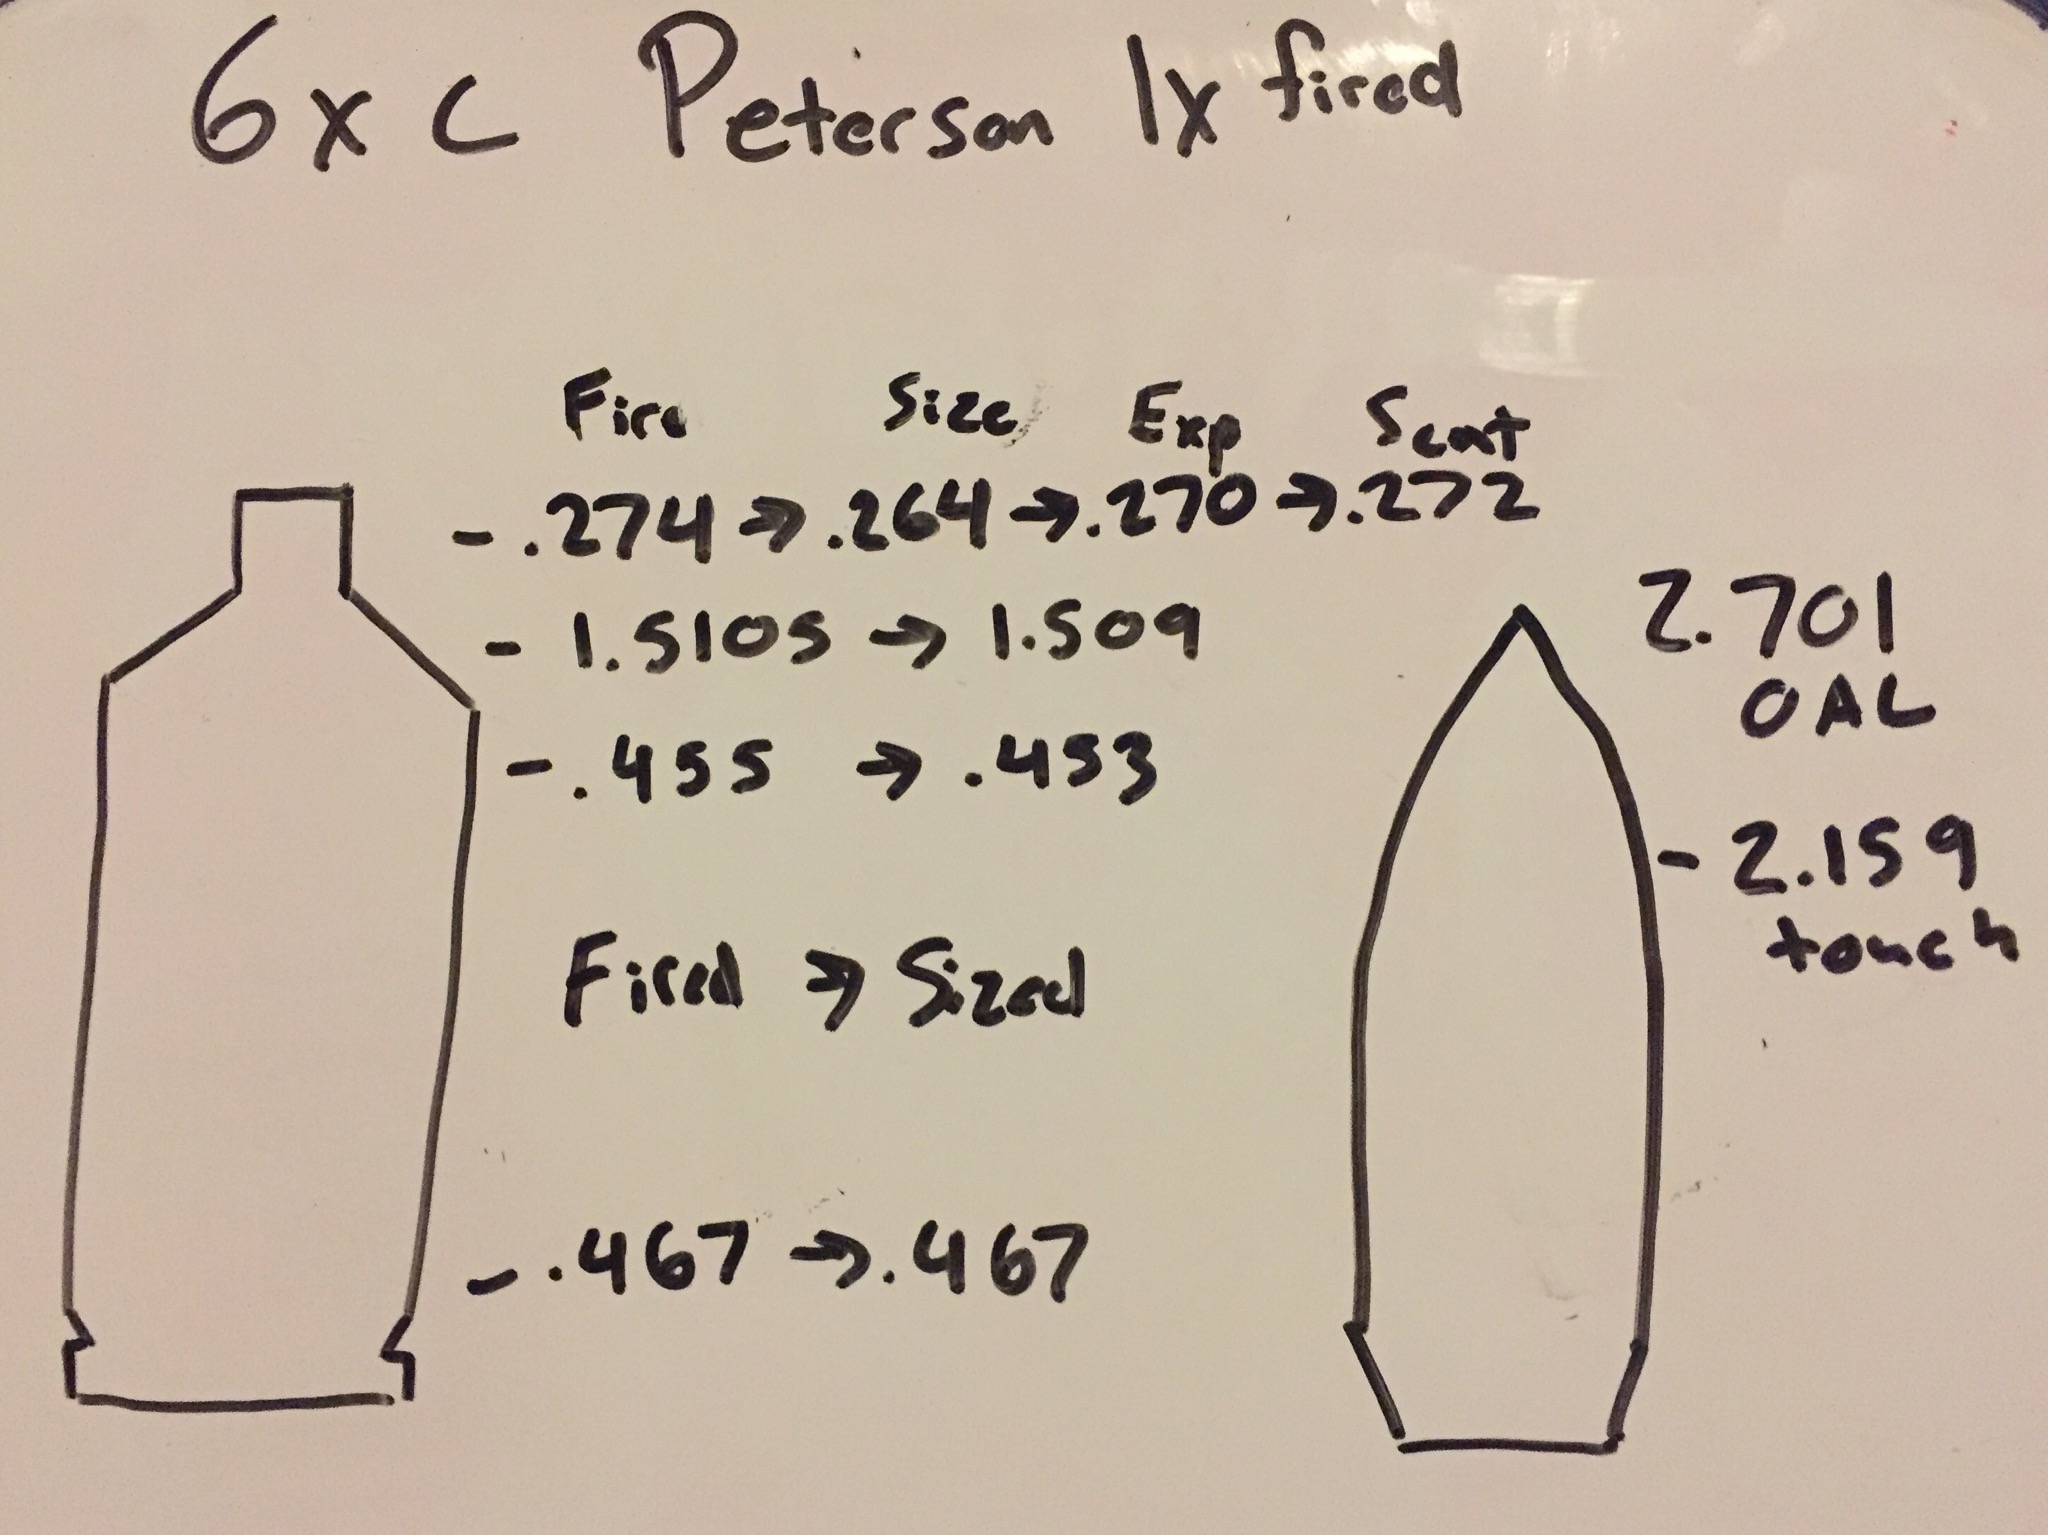 6xc Peterson 1x fired
Fire Size Exp Seat
- .274 → .264 → .270 → .272
- 1.5105 → 1.509
- .455 → .453
Fired → Sized
- .467 → .467
2.701
OAL
- 2.159
touch